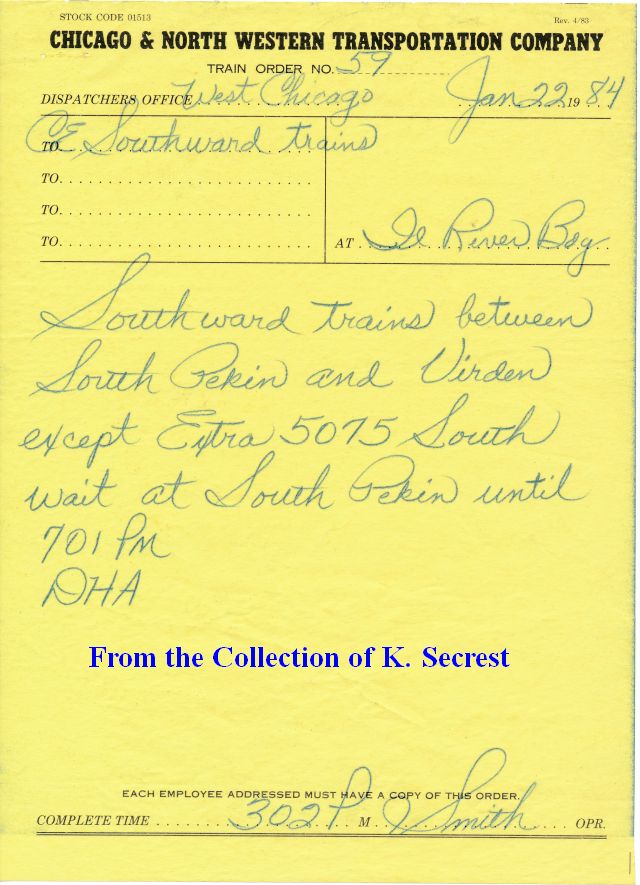 STOCK CODE 01513 Rev. 4/83
CHICAGO & NORTH WESTERN TRANSPORTATION COMPANY
TRAIN ORDER NO. 59
DISPATCHERS OFFICE West Chicago Jan 22 19 84
TO. CE Southward trains
TO.
TO.
TO. AT Il River Bdg
Southward trains between
South Pekin and Virden
except Extra 5075 South
wait at South Pekin until
701 PM
DHA
From the Collection of K. Secrest
EACH EMPLOYEE ADDRESSED MUST HAVE A COPY OF THIS ORDER.
COMPLETE TIME 302 P M J Smith OPR.